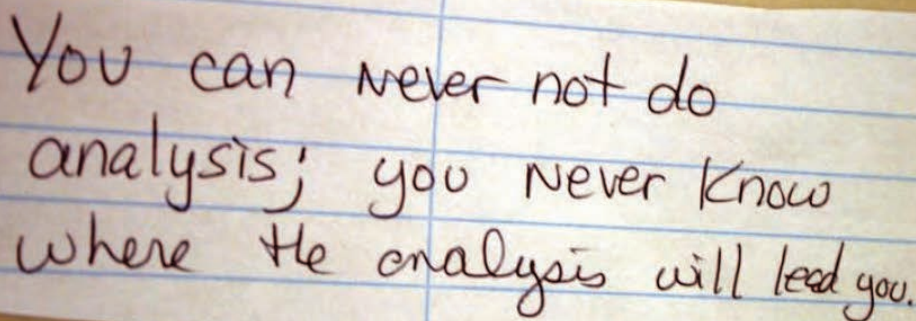 You can never not do
analysis; you never know
where the analysis will lead you.